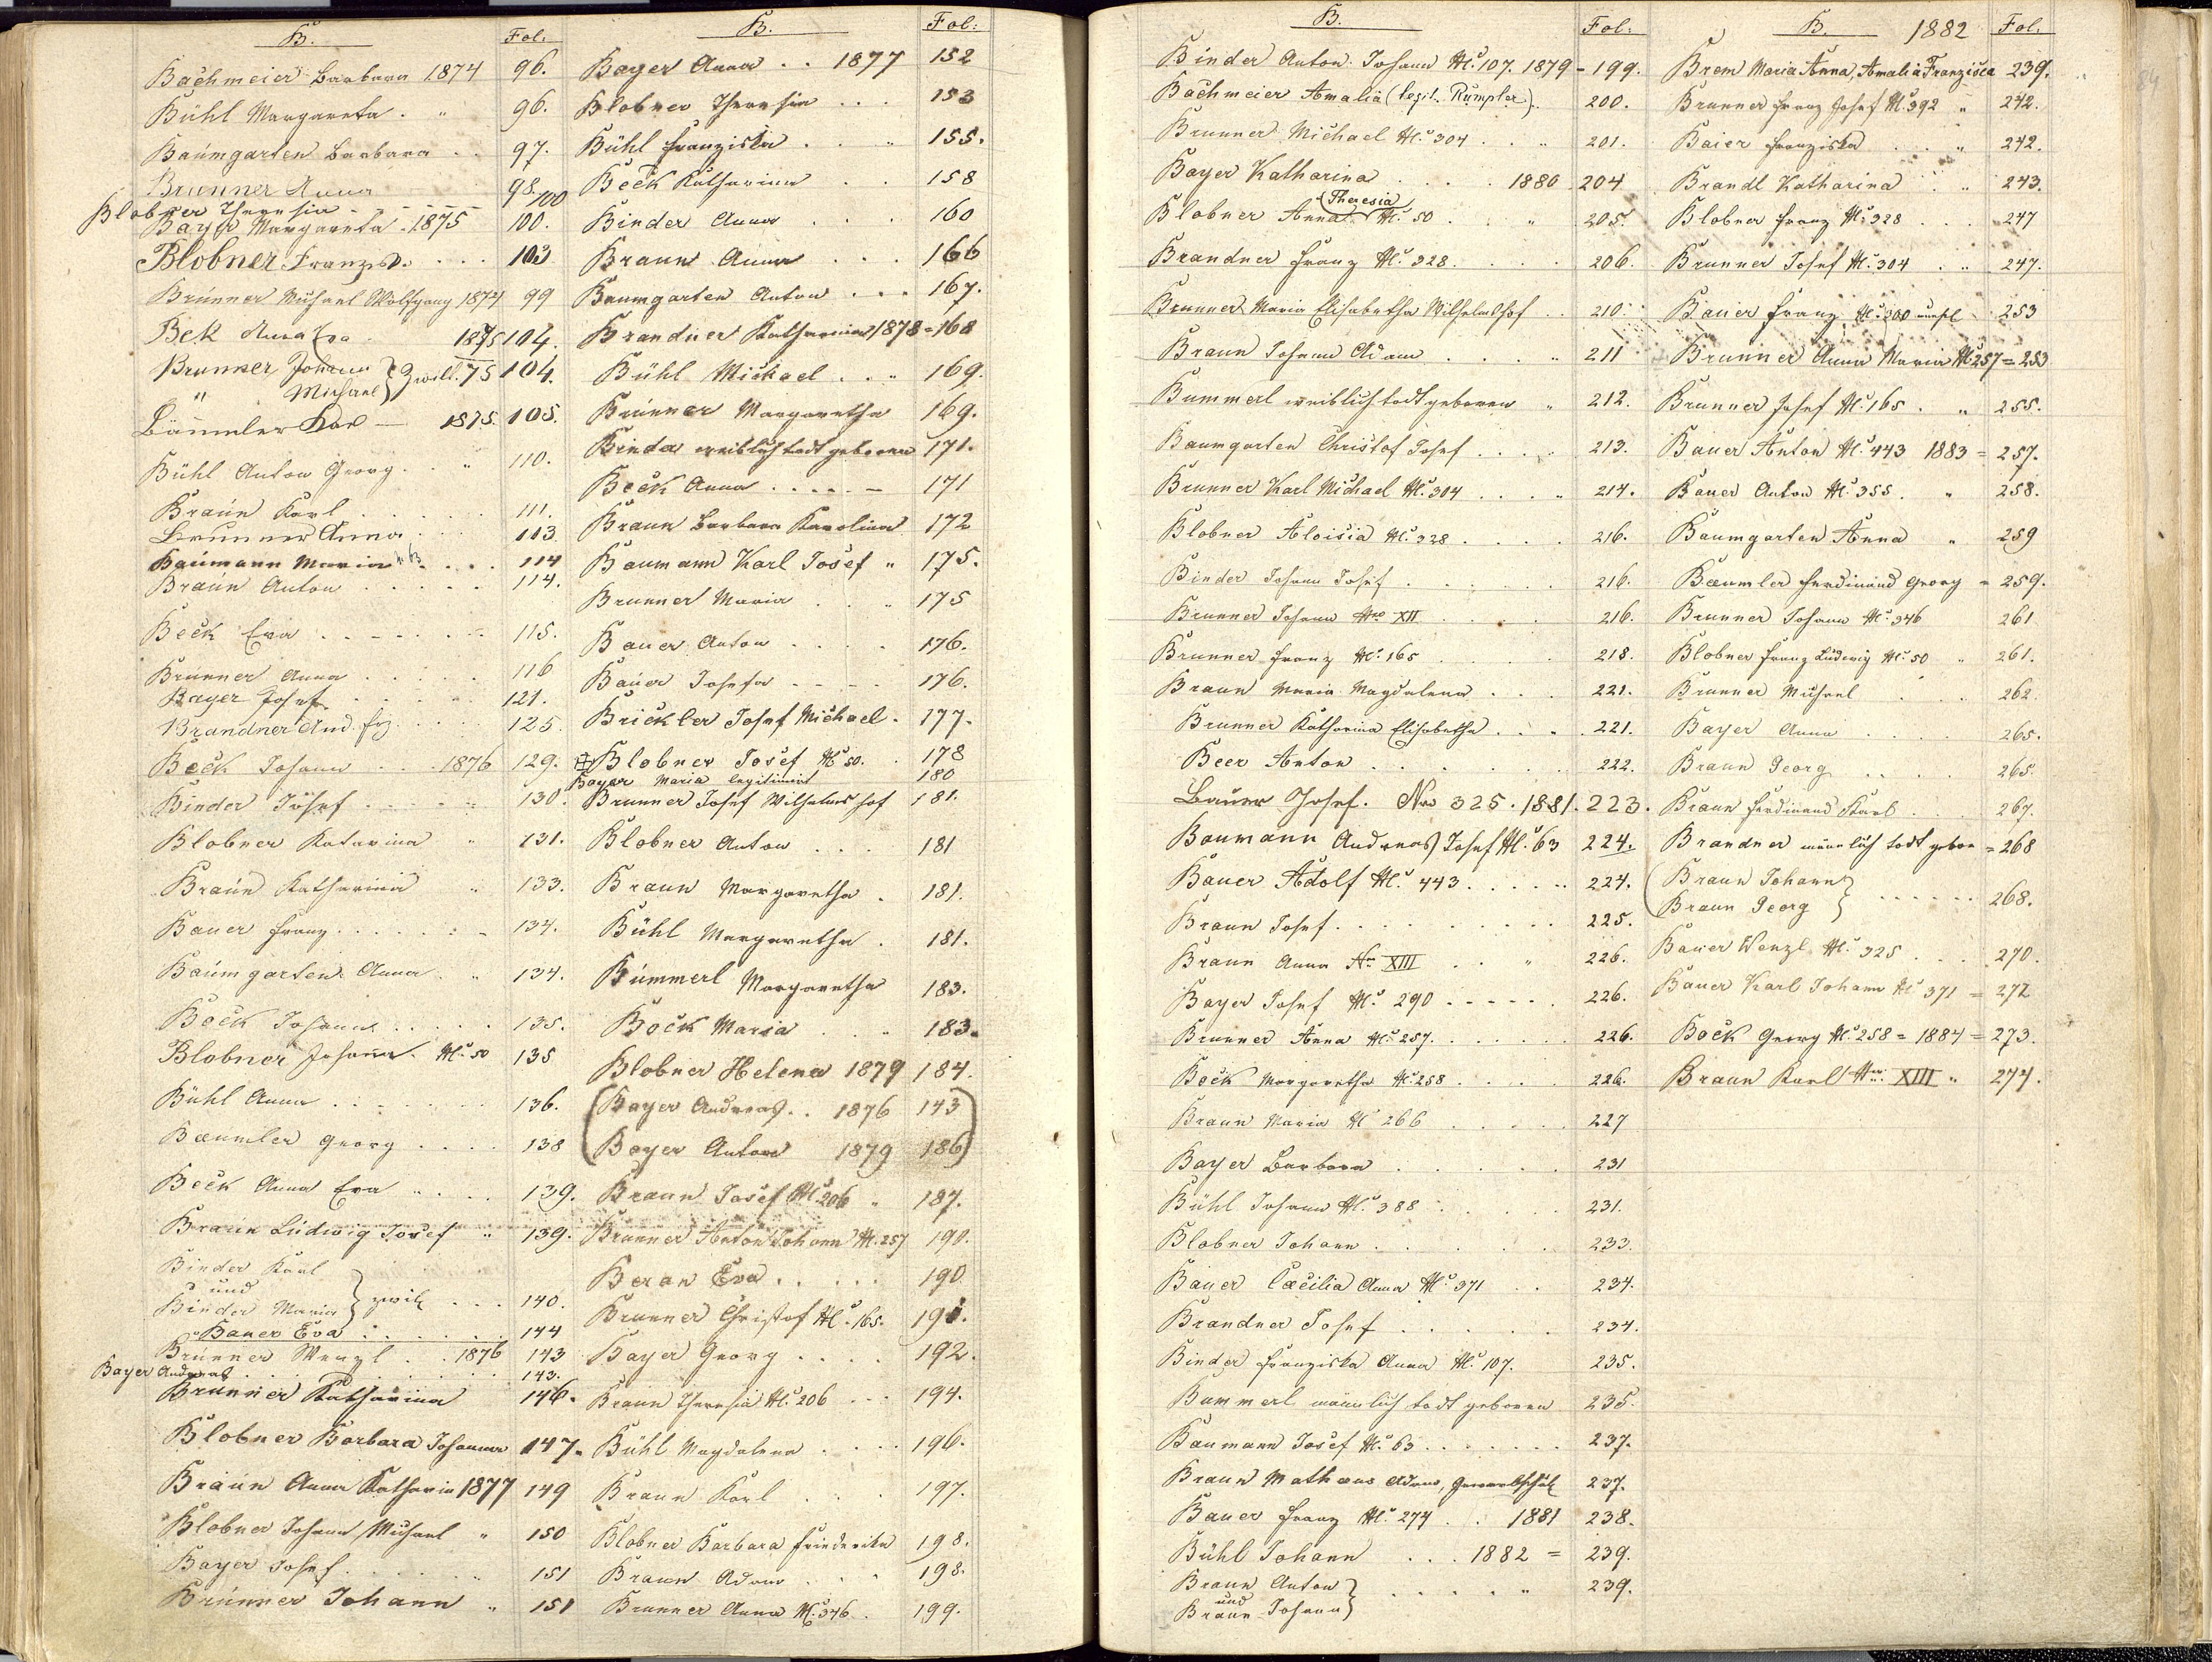 B. Fol:
Bachmeier Barbara 1874 96.
Bühl Margareta . " 96.
Baumgarten Barbara . . 97.
Brunner Anna 98.
Blobner Theresia - - - - - 100
Bayer Margareta . 1875 100.
Blobner Franzisk. . . . 103
Brunner Michael Wolfgang 1874 99
Bek Anna Eva . 1875 104.
Brunner Johann } Zwill. 75 104.
" Michael }
Bäumler Kar — 1875. 105.
Bühl Anton Georg . . " 110.
Braun Karl . . . . . 111.
Brunner Anna . . . 113
Baumann Maria N 63 . . . . 114
Braun Anton . . . . . 114.
Beck Eva . . - - . . - 115.
Brunner Anna . . . . . 116
Bayer Josef . . . . 121.
Brandner And. frz. . . . . 125
Beck Johann . . . 1876 129.
Binder Josef . . . . " 130.
Blobner Katarina " 131.
Braun Katharina " 133.
Bauer Franz . . . . . : - 134.
Baumgarten Anna . " 134.
Bock Johann . . . . . 135.
Blobner Johann . Nº 50 135
Bühl Anna . . - . . . . 136.
Baeumler Georg . . . . 138
Beck Anna Eva " . . . 139.
Braun Ludwig Josef " 139.
Binder Karl
und } zwill . . . 140.
Binder Maria
Bauer Eva . . . . . . 144
Brunner Wenzl . . 1876 143
Bayer Andreas . . . . . . . . 143.
Brunner Katharina 146.
Blobner Barbara Johanna 147.
Braun Anna Katharin 1877 149
Blobner Johann Michael " 150
Bayer Josef . . . . . " 151
Brunner Johann " 151
B. Fol:
Bayer Anna . . 1877 152
Blobner Theresia . . . 153
Bühl Franziska . . . " 155.
Beck Katharina . . 158
Binder Anna . . . 160
Braun Anna . . . 166
Baumgarten Anton . . . 167.
Brandner Katharina 1878 = 168
Bühl Michael . . " 169.
Brunner Margaretha 169.
Binder weiblich todt geboren 171.
Beck Anna . . . . - 171
Braun Barbara Karolina 172
Baumann Karl Josef " 175.
Brunner Maria . . " 175
Bauer Anton . . . . 176.
Bauer Josefa - - - - 176.
Brickler Josef Michael . 177.
Blobner Josef Nº 50. . 178
Bayer Maria legitimirt 180
Brunner Josef Wilhelmshof 181.
Blobner Anton . . . 181
Braun Margaretha . 181.
Bühl Margaretha . 181.
Bümmerl Margaretha 183.
Bock Maria . . " 183.
Blobner Helena 1879 184.
(Bayer Andreas . . 1876 143)
(Bayer Anton 1879 186)
Braun Josef Nº 206 " 187.
Brunner Anton Johann Nº 257 190.
Beran Eva . . . . . 190
Brunner Christof Nº 165. 191.
Bayer Georg . . . . 192.
Braun Theresia Nº 206 . . . 194.
Bühl Magdalena . . . . 196.
Braun Karl . . . 197.
Blobner Barbara Friederika 198.
Braun Adam . . . . 198.
Brunner Anna Nº 346 . 199.
B. Fol:
Binder Anton Johann Nº 107. 1879 - 199.
Bachmeier Amalia (legit. Rümpler). 200.
Brunner Michael Nº 304 . . " 201.
Bayer Katharina . . . . 1880 204
(Theresia)
Blobner Anna Nº 50 . . " 205.
Brandner Franz Nº 328. . . . . 206.
Brunner Maria Elisabetha Wilhelmshof . . 210.
Braun Johann Adam . . . . " 211
Bummerl weiblich todt geboren " 212.
Baumgarten Christof Josef . . . . 213.
Brunner Karl Michael Nº 304 . . . " 214.
Blobner Aloisia Nº 328 . . . . 216.
Binder Johann Josef . . . . . . 216.
Brunner Johann Nro XII . . . . 216.
Brunner Franz Nº 165 . . . . . 218.
Braun Maria Magdalena . . . 221.
Brunner Katharina Elisabetha . . . . 221.
Beer Anton . . . . . . . 222.
Bauer Josef. Nro 325. 1881. 223.
Baumann Andreas Josef Nº 63 224.
Bauer Adolf Nº 443 . . . . . 224.
Braun Josef . . . . . . . . 225.
Braun Anna Nr XIII . . " 226.
Bayer Josef Nº 290 - - - - . 226.
Brunner Anna Nº 257. . . . . . . 226.
Bock Margaretha Nº 258 . . . . 226.
Braun Maria Nº 266 . . . . . 227
Bayer Barbara . . . . . 231
Bühl Johann Nº 388 . . . . . 231.
Blobner Johann . . . . . . 233.
Bauer Caecilia Anna Nº 371 . . 234.
Brandner Josef . . . . . 234.
Binder Franziska Anna Nº 107. 235.
Bummerl männlich todt geboren 235.
Baumann Josef Nº 63 . . . . . . . 237.
Braun Mathaeus Adam, 237.
Bauer Franz Nº 274 . . 1881 238.
Bühl Johann . . . 1882 = 239.
Braun Anton
und } . . . . " 239.
Braun Johann
B. 1882 Fol.
Brem Maria Anna, Amalia Franzisca 239.
Brunner Franz Josef Nº 392 " 242.
Baier Franziska . . " 242.
Brandl Katharina . . " 243.
Blobner Franz Nº 328 . . . 247
Brunner Josef Nº 304 . . " 247.
Bauer Franz Nº 200 253
Brunner Anna Maria Nº 257 = 253
Brunner Josef Nº 165 . " 255.
Bauer Anton Nº 443 1883 = 257.
Bauer Anton Nº 355. " 258.
Baumgarten Anna " 259
Baeumler Ferdinand Georg = 259.
Brunner Johann Nº 346 261
Blobner Franz Ludwig Nº 50 " 261.
Brunner Michael . . . 262.
Bayer Anna . . . . 265.
Braun Georg . . . . 265.
Braun Ferdinand Karl . . . 267.
Brandner männlich todt gebor = 268
Braun Johann
Braun Georg } . . . . . . 268.
Bauer Wenzl Nº 325 . . . . 270.
Bauer Karl Johann Nº 371 = 272
Bock Georg Nº 258 = 1884 = 273.
Braun Karl Nro XIII " 274.
84